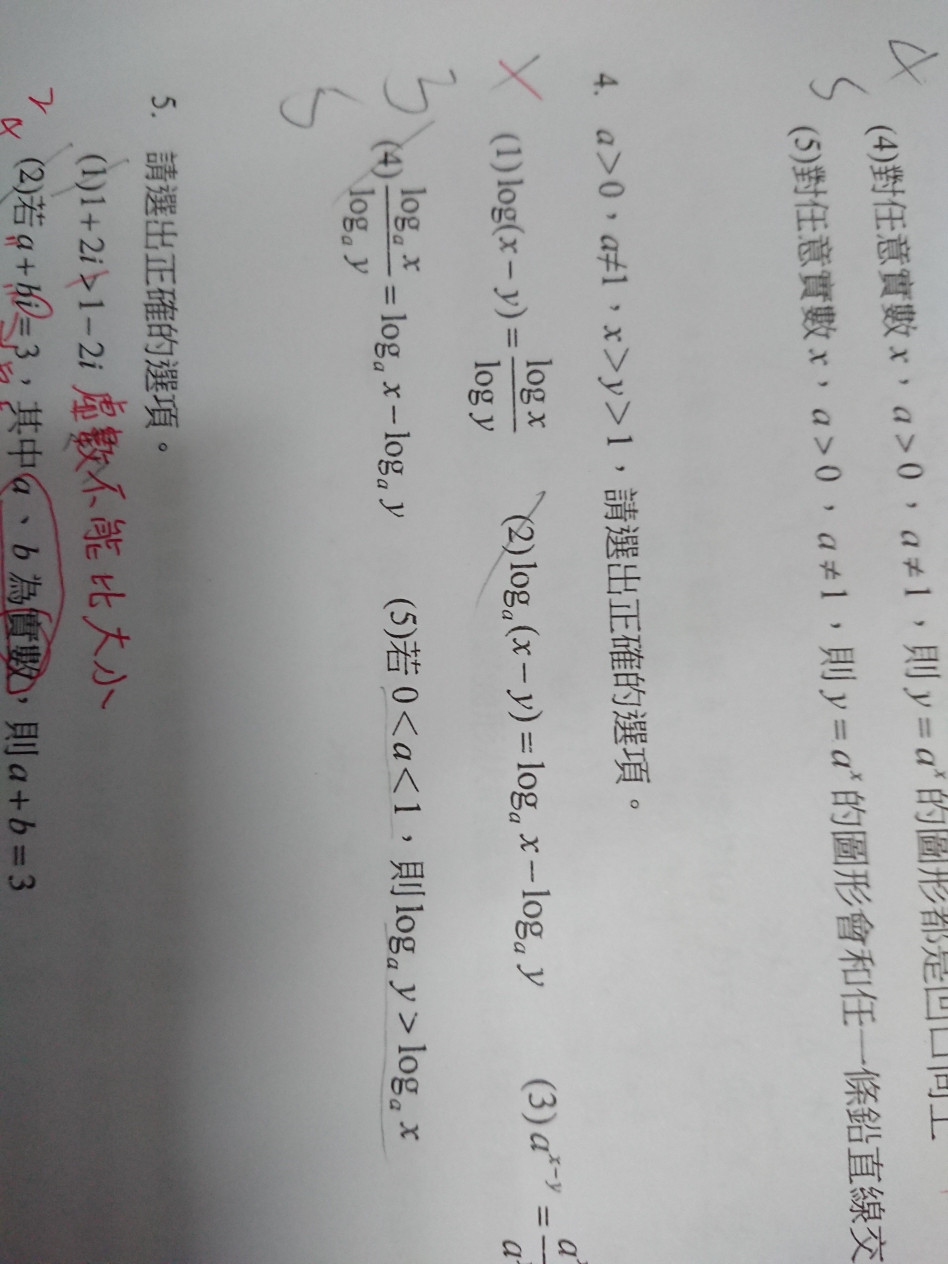 4
(4)對任意實數 x,a>0,a≠1,則 y=aˣ 的圖形都是凹口向上
5
(5)對任意實數 x,a>0,a≠1,則 y=aˣ 的圖形會和任一條鉛直線交
4. a>0,a≠1,x>y>1,請選出正確的選項。
(1) log(x−y)= log x / log y (2) logₐ(x−y)=logₐ x−logₐ y (3) a^(x−y) =
3
(4) logₐ x / logₐ y =logₐ x−logₐ y (5)若 0<a<1,則 logₐ y>logₐ x
5
5. 請選出正確的選項。
(1)1+2i>1−2i 虛數不能比大小
2
4
(2)若 a+bi=3,其中 a、b 為實數,則 a+b=3